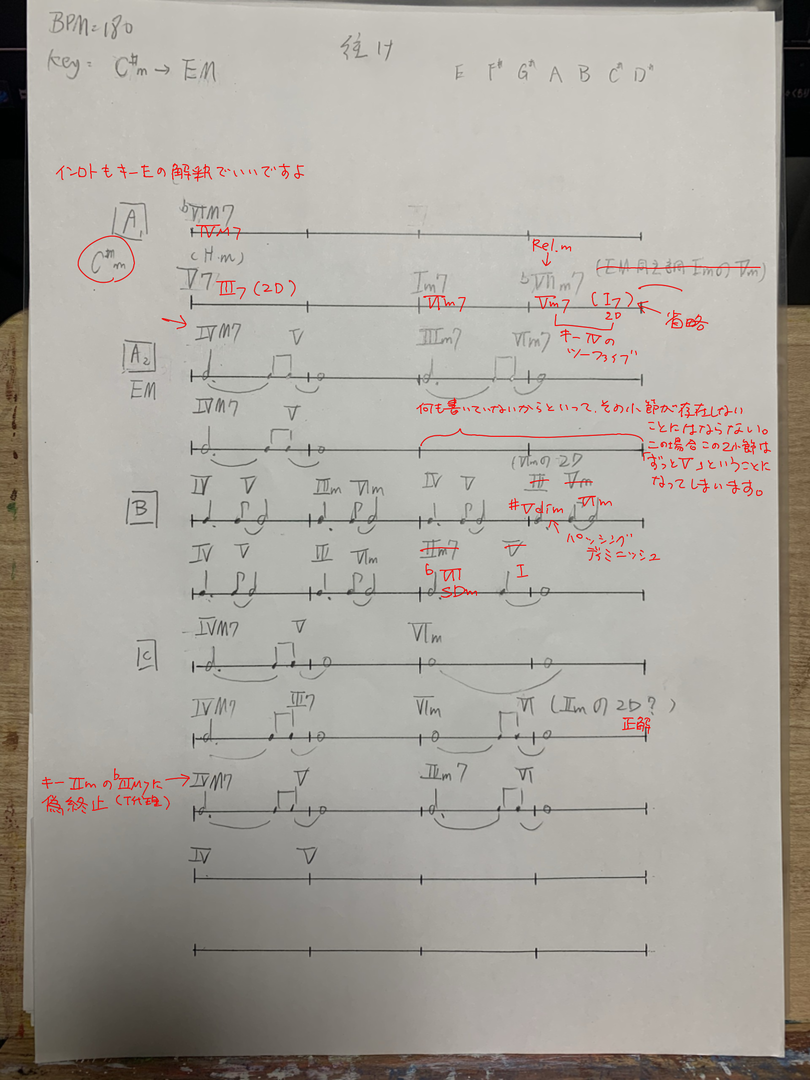 BPM=180
Key= C#m → EM
E F# G# A B C# D#
イントロもキーEの解釈でいいですよ
A1 ♭VIM7
IVM7
C#m (H.m) Rel.m
V7 III7 (2D) Im7 VIm7 ♭VIIm7 Vm7 (I7) 2D
(EM同主調ImのVm)
省略
キーIVのツーファイブ
A2 IVM7 V IIIm7 VIm7
EM
IVM7 V
何も書いていないからといって、その小節が存在しない
ことにはならない。
この場合この2小節は
「ずっとV」ということに
なってしまいます。
(VImの2D
B IV V IIIm VIm IV V III Vm
#Vdim VIm
パッシング
ディミニッシュ
IV V III VIm IIm7 V
♭VI I
SDm
C IVM7 V VIm
IVM7 III7 VIm VI (IImの2D?)
正解
キーIImの♭IIIM7に
偽終止(T代理)
IVM7 V IIIm7 VI
IV V